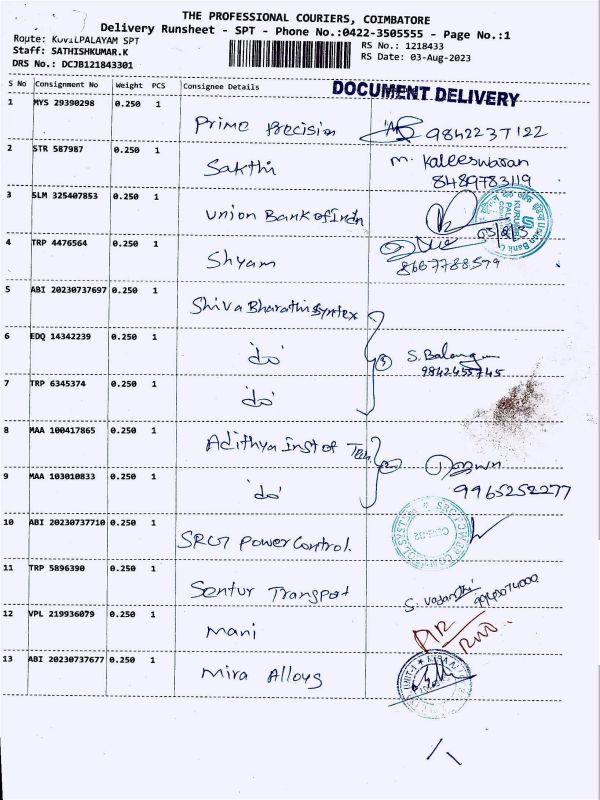 THE PROFESSIONAL COURIERS, COIMBATORE
Delivery Runsheet - SPT - Phone No.:0422-3505555 - Page No.:1
Route: KOVILPALAYAM SPT
RS No.: 1218433
Staff: SATHISHKUMAR.K
RS Date: 03-Aug-2023
DRS No.: DCJB121843301
S No Consignment No Weight PCS Consignee Details
DOCUMENT DELIVERY
1 MYS 29390298 0.250 1
Prime Precision 9842237122
2 STR 587987 0.250 1
Sakthi M. Kaleeswaran
8489783119
3 SLM 325407853 0.250 1
Union Bank of Indn
4 TRP 4476564 0.250 1
Shyam 8667788579
5 ABI 20230737697 0.250 1
Shiva Bharathi Syntex
6 EDQ 14342239 0.250 1
do 3 S. Balangu
9842455745
7 TRP 6345374 0.250 1
do
8 MAA 100417865 0.250 1
Adithya Inst of Tech
9 MAA 103010833 0.250 1
do 2 9965252277
10 ABI 20230737710 0.250 1
SRG Power Control.
11 TRP 5896390 0.250 1
Sentur Transport
12 VPL 219936079 0.250 1
Mani
13 ABI 20230737677 0.250 1
Mira Alloys